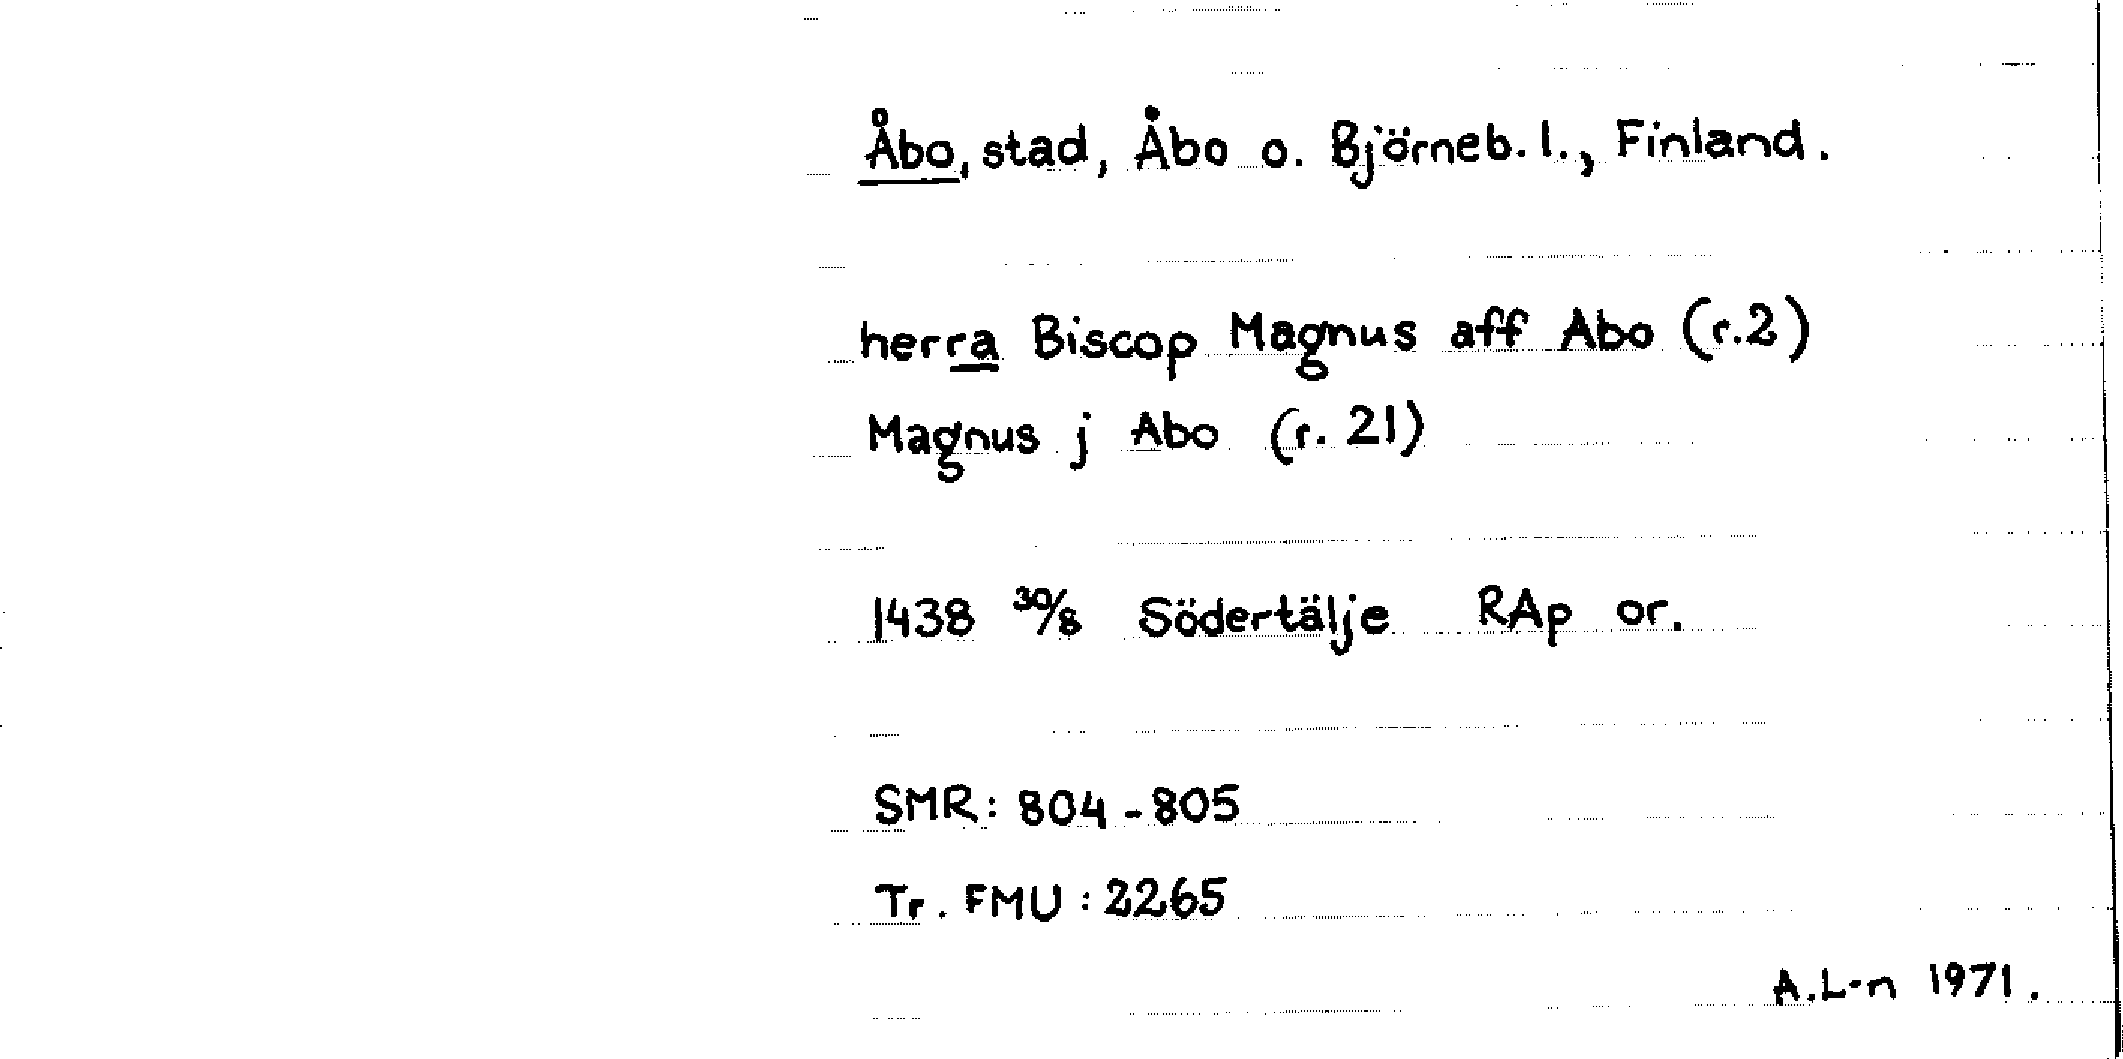 Åbo, stad, Åbo o. Björneb. l., Finland.
herra Biscop Magnus aff Abo (r.2)
Magnus j Abo (r. 21)
1438 30/8 Södertälje RAp or.
SMR: 804-805
Tr. FMU: 2265
A.L-n 1971.